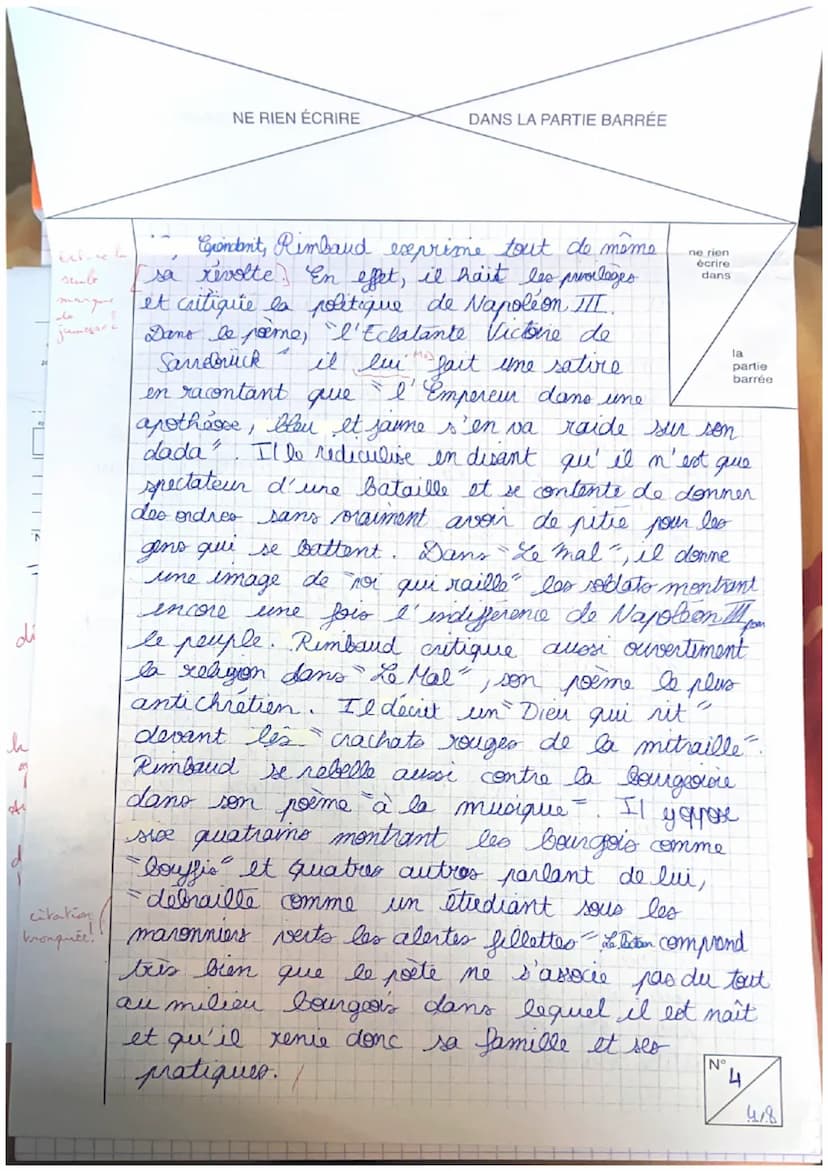 NE RIEN ÉCRIRE DANS LA PARTIE BARRÉE
ne rien
écrire
dans
la
partie
barrée
Cependant, Rimbaud exprime tout de même
[sa révolte] En effet, il hait les privilèges
et critique la politique de Napoléon III.
Dans le poème, "l'Eclatante Victoire de
Sarrebrück" il lui fait une satire
en racontant que "l'Empereur dans une
apothéose, bleu et jaune s'en va raide sur son
dada". Il le rediculise en disant qu'il n'est que
spectateur d'une bataille et se contente de donner
des ordres sans vraiment avoir de pitié pour les
gens qui se battent. Dans "Le Mal", il donne
une image de "roi qui raille" les soldats montrant
encore une fois l'indifférence de Napoléon III pour
le peuple. Rimbaud critique aussi ouvertement
la religion dans "Le Mal", son poème le plus
antichrétien. Il décrit un "Dieu qui rit"
devant les "crachats rouges de la mitraille".
Rimbaud se rebelle aussi contre la bourgeoisie
dans son poème "à la musique". Il y oppose
six quatrains montrant les bourgeois comme
"bouffis" et quatres autres parlant de lui,
"débraillé comme un étudiant sous les
maronniers verts les alertes fillettes". Le lecteur comprend
très bien que le poète ne s'associe pas du tout
au milieu bourgeois dans lequel il est naît
et qu'il renie donc sa famille et ses
pratiques.
est-ce la
seule
marque
de
jeunesse?
citation
tronquée!
N°
4
4/8